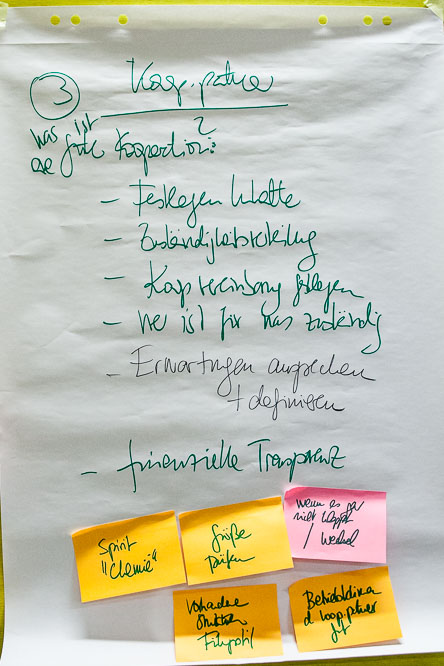 3 Koop.partner
was ist
eine gute Kooperation?
- Festlegen Inhalte
- Zuständigkeitsverteilung
- Koopvereinbarung festlegen
- wer ist für was zuständig
- Erwartungen aussprechen
+ definieren
- finanzielle Transparenz
Spirit
"Chemie"
Größe
wenn es gar
nicht klappt
/ Wechsel
Vorhandene
Strukturen
Betriebsklima
d. Koop.partner